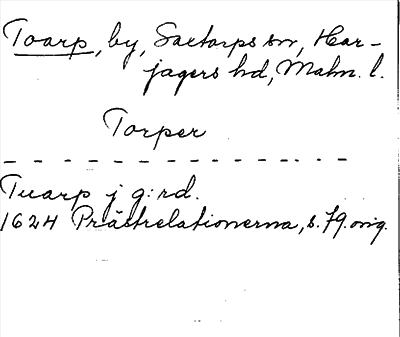 Toarp, by, Saxtorps sn, Har-
jagers hd, Malm. l.
Torper
Tuarp j g:rd.
1624 Prästrelationerna, s. 79. orig.